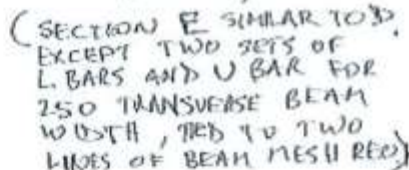 (SECTION E SIMILAR TO D.
EXCEPT TWO SETS OF
L. BARS AND U BAR FOR
250 TRANSVERSE BEAM
WIDTH, TIED TO TWO
LINES OF BEAM MESH REO)